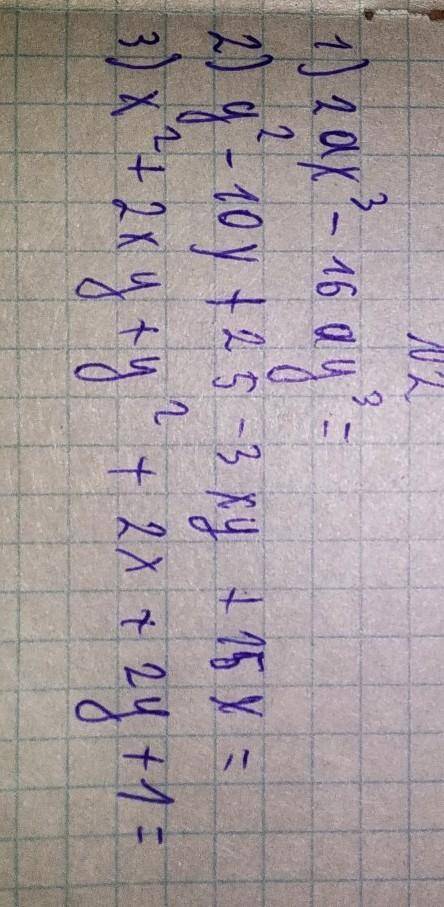 №2
1) 2ax³ - 16ay³ =
2) y² - 10y + 25 - 3xy + 15x =
3) x² + 2xy + y² + 2x + 2y + 1 =